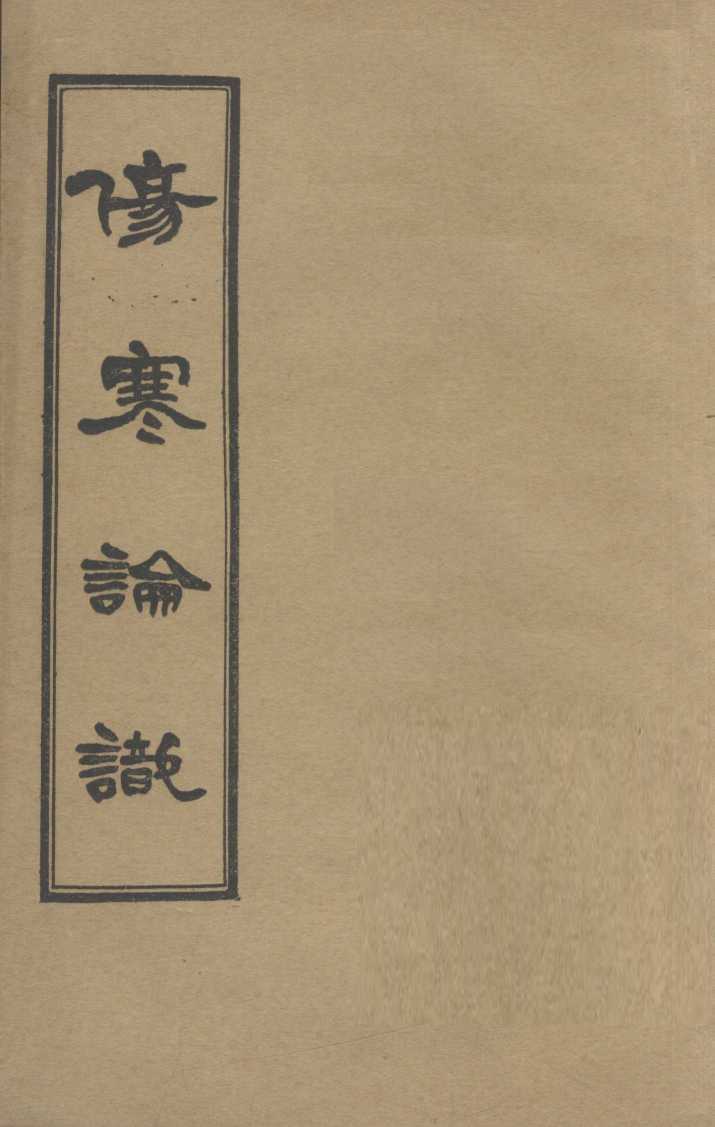 傷寒論識